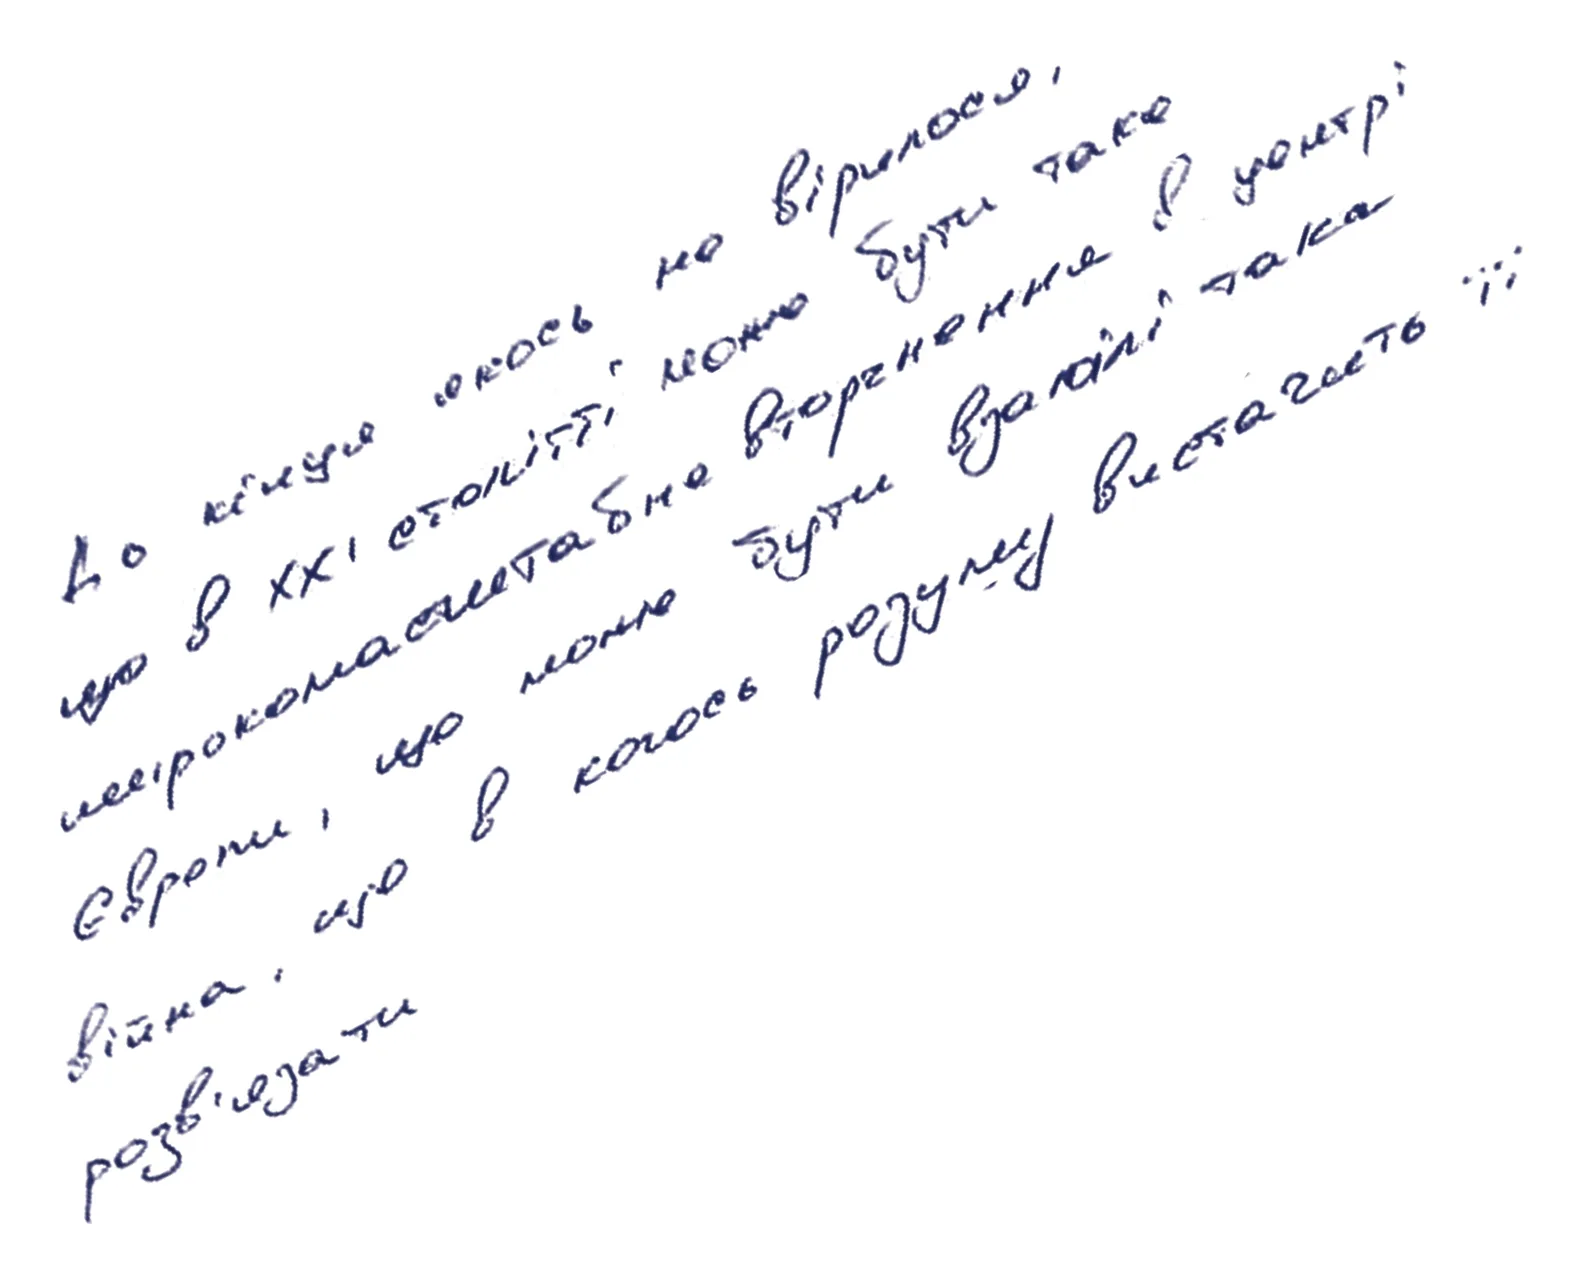 До кінця якось не вірилося,
що в ХХІ столітті може бути таке
широкомасштабне вторгнення в центрі
Європи, що може бути взагалі така
війна, що в когось розуму вистачить її
розв'язати